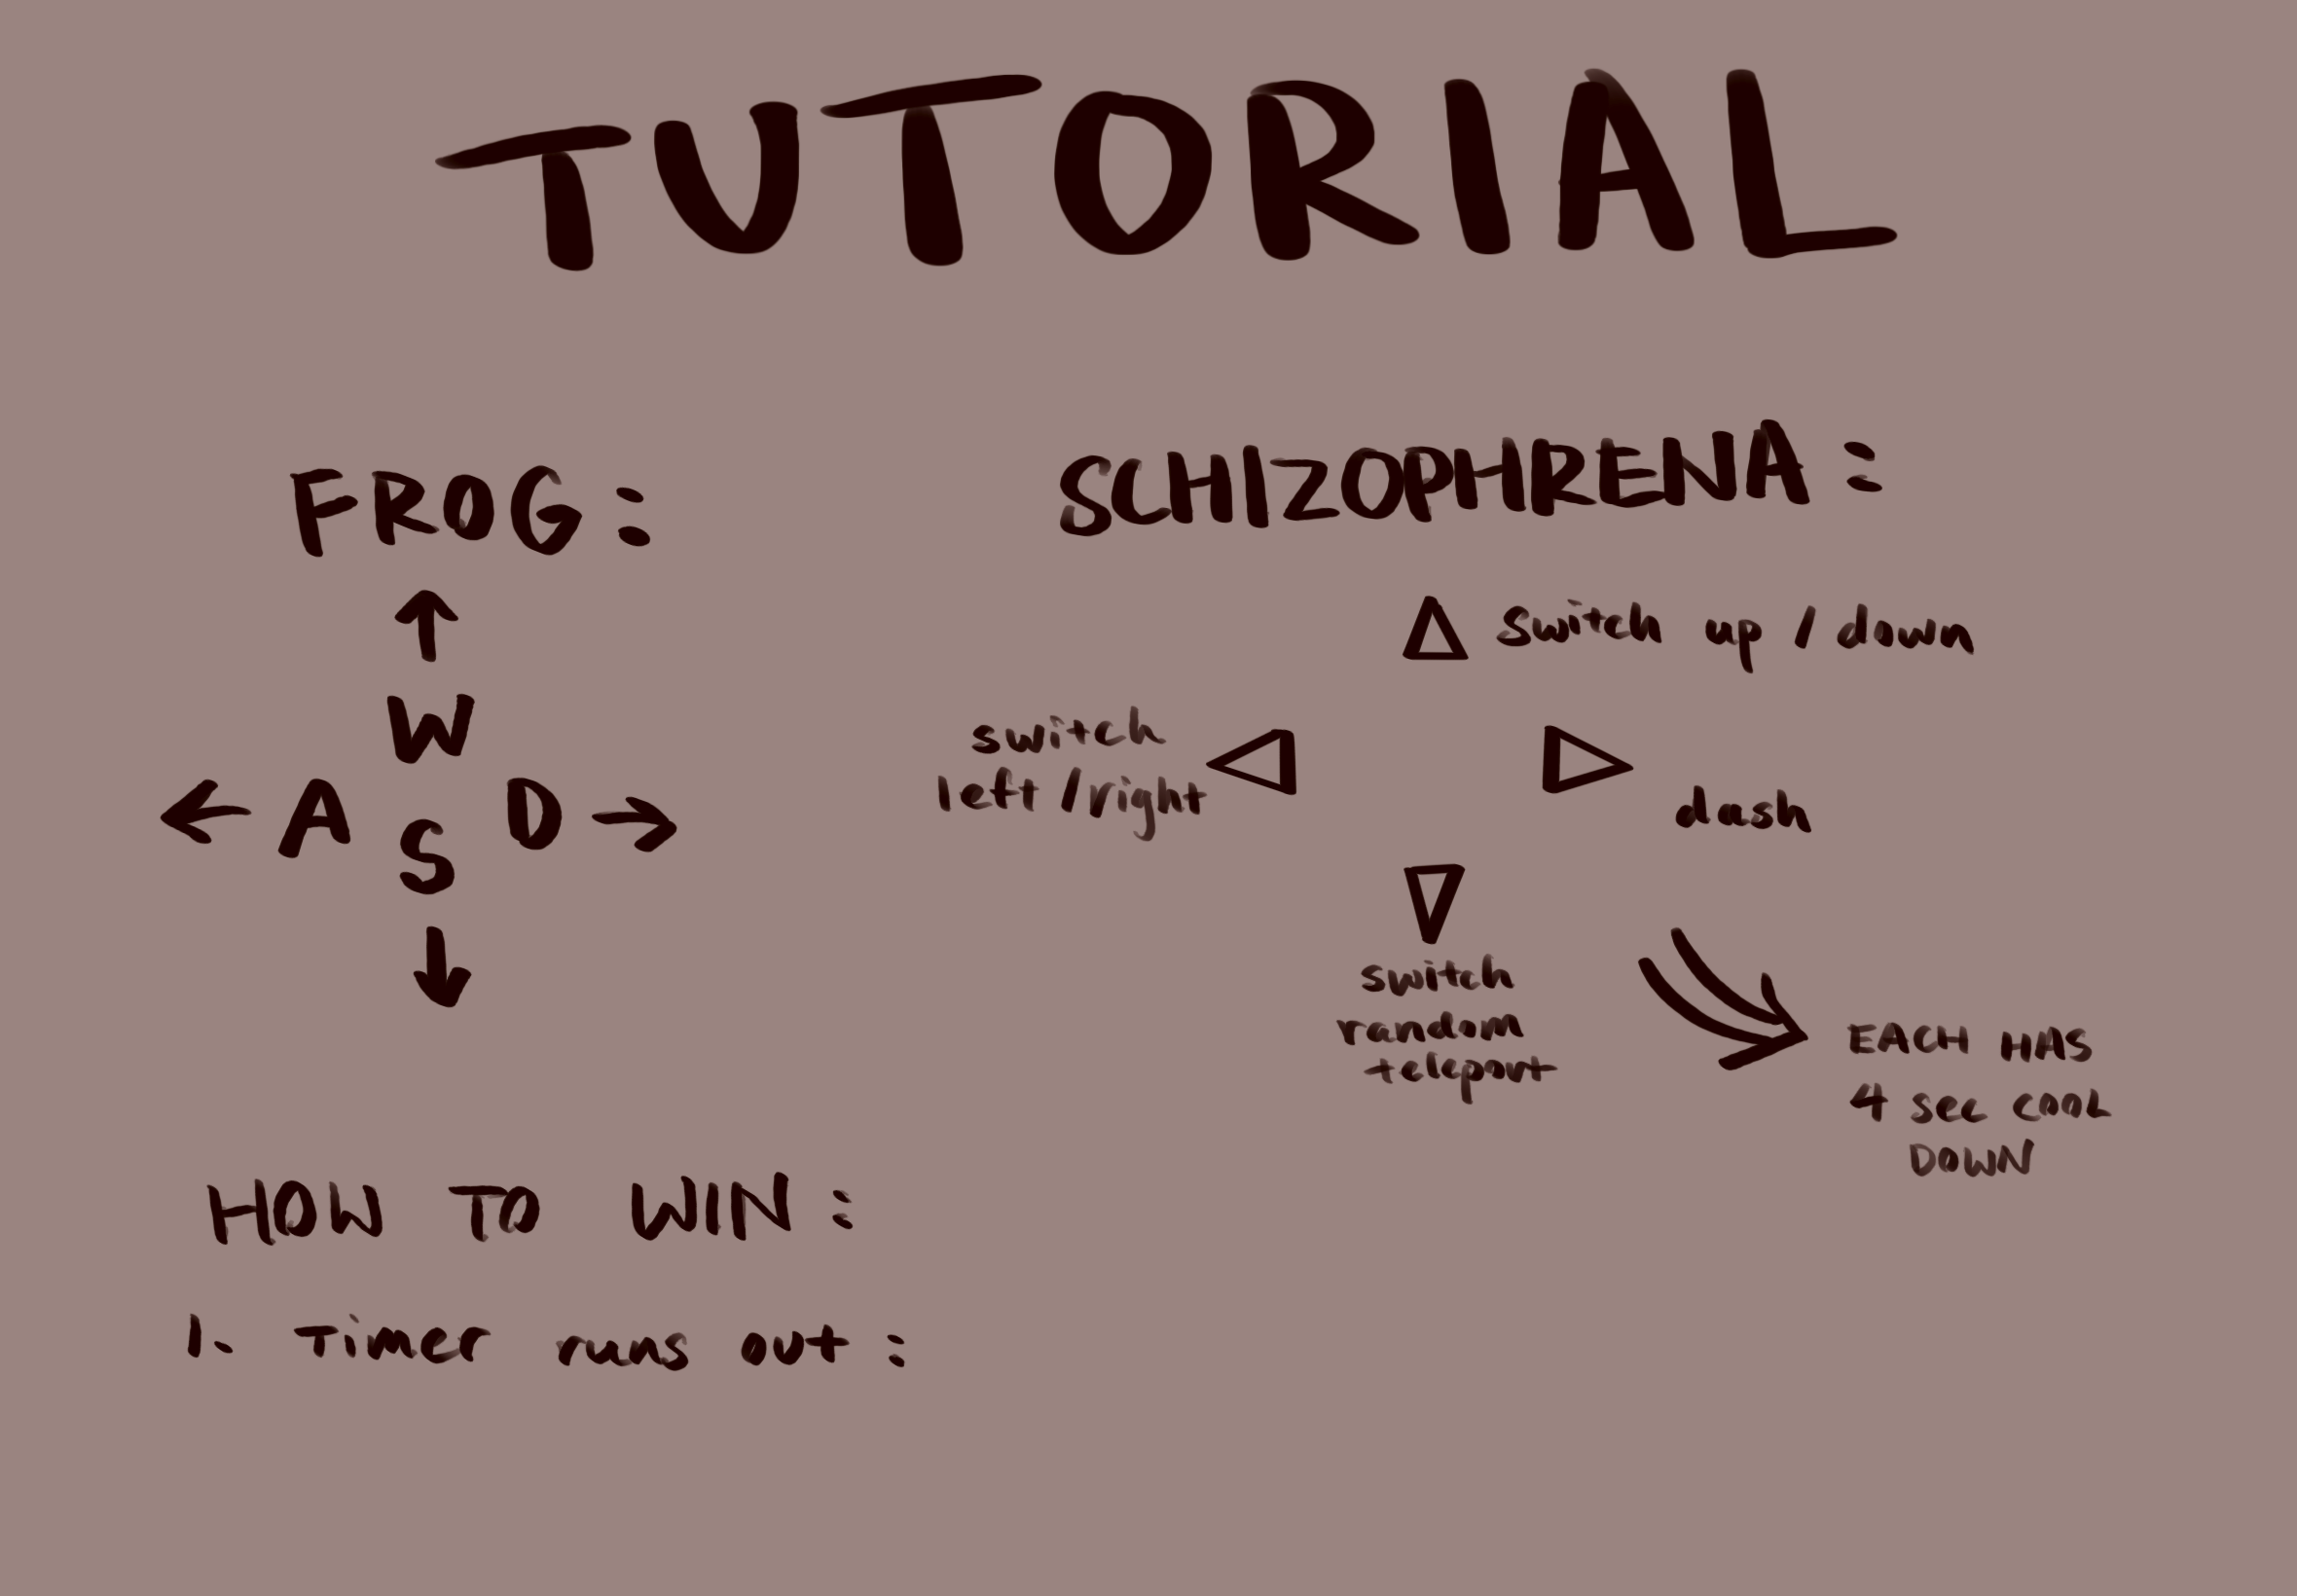 TUTORIAL
FROG:
W
A
S
D
SCHIZOPHRENA:
switch up / down
switch
left / right
dash
switch
random
teleport
EACH HAS
4 sec cool
DOWN
HOW TO WIN:
1. Timer runs out: